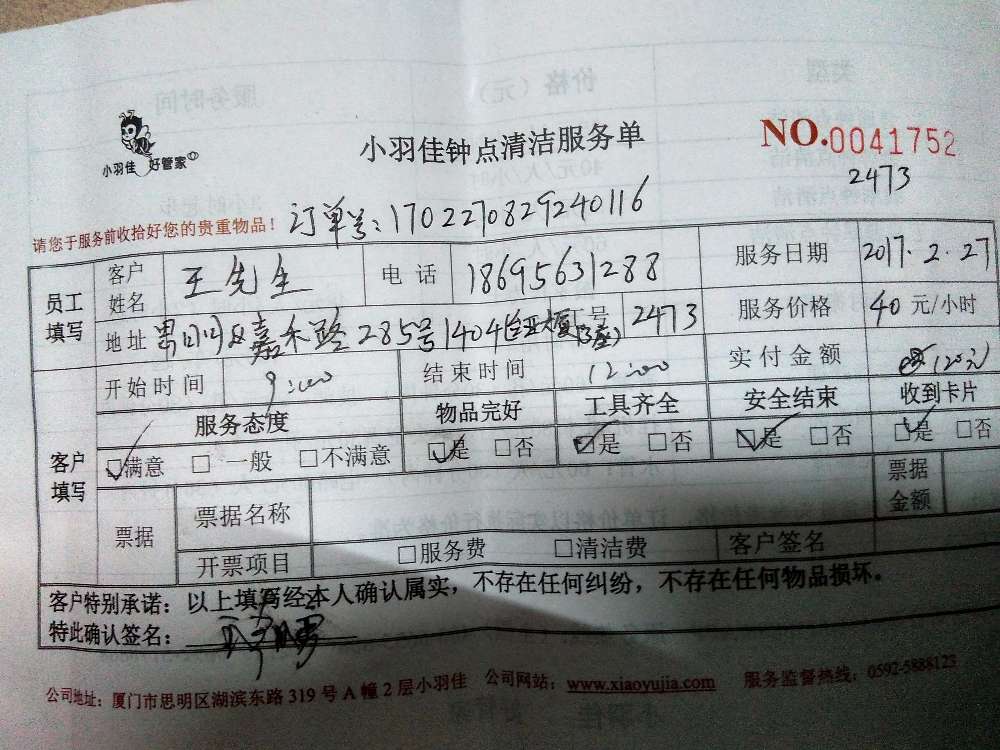 小羽佳 好管家
小羽佳钟点清洁服务单
NO.0041752
2473
请您于服务前收拾好您的贵重物品！ 订单号：1702270829240116
员工填写 客户姓名 王先生 电话 18695631288 服务日期 2017.2.27
地址 嘉禾路285号1404 工号 2473 服务价格 40 元/小时
开始时间 9:00 结束时间 12:00 实付金额 (120元)
客户填写 服务态度 物品完好 工具齐全 安全结束 收到卡片
☑满意 □一般 □不满意 ☑是 □否 ☑是 □否 ☑是 □否 ☑是 □否
票据 票据名称 票据金额
开票项目 □服务费 □清洁费 客户签名
客户特别承诺：以上填写经本人确认属实，不存在任何纠纷，不存在任何物品损坏。
特此确认签名：
公司地址：厦门市思明区湖滨东路319号A幢2层小羽佳 公司网站：www.xiaoyujia.com 服务监督热线：0592-5888123